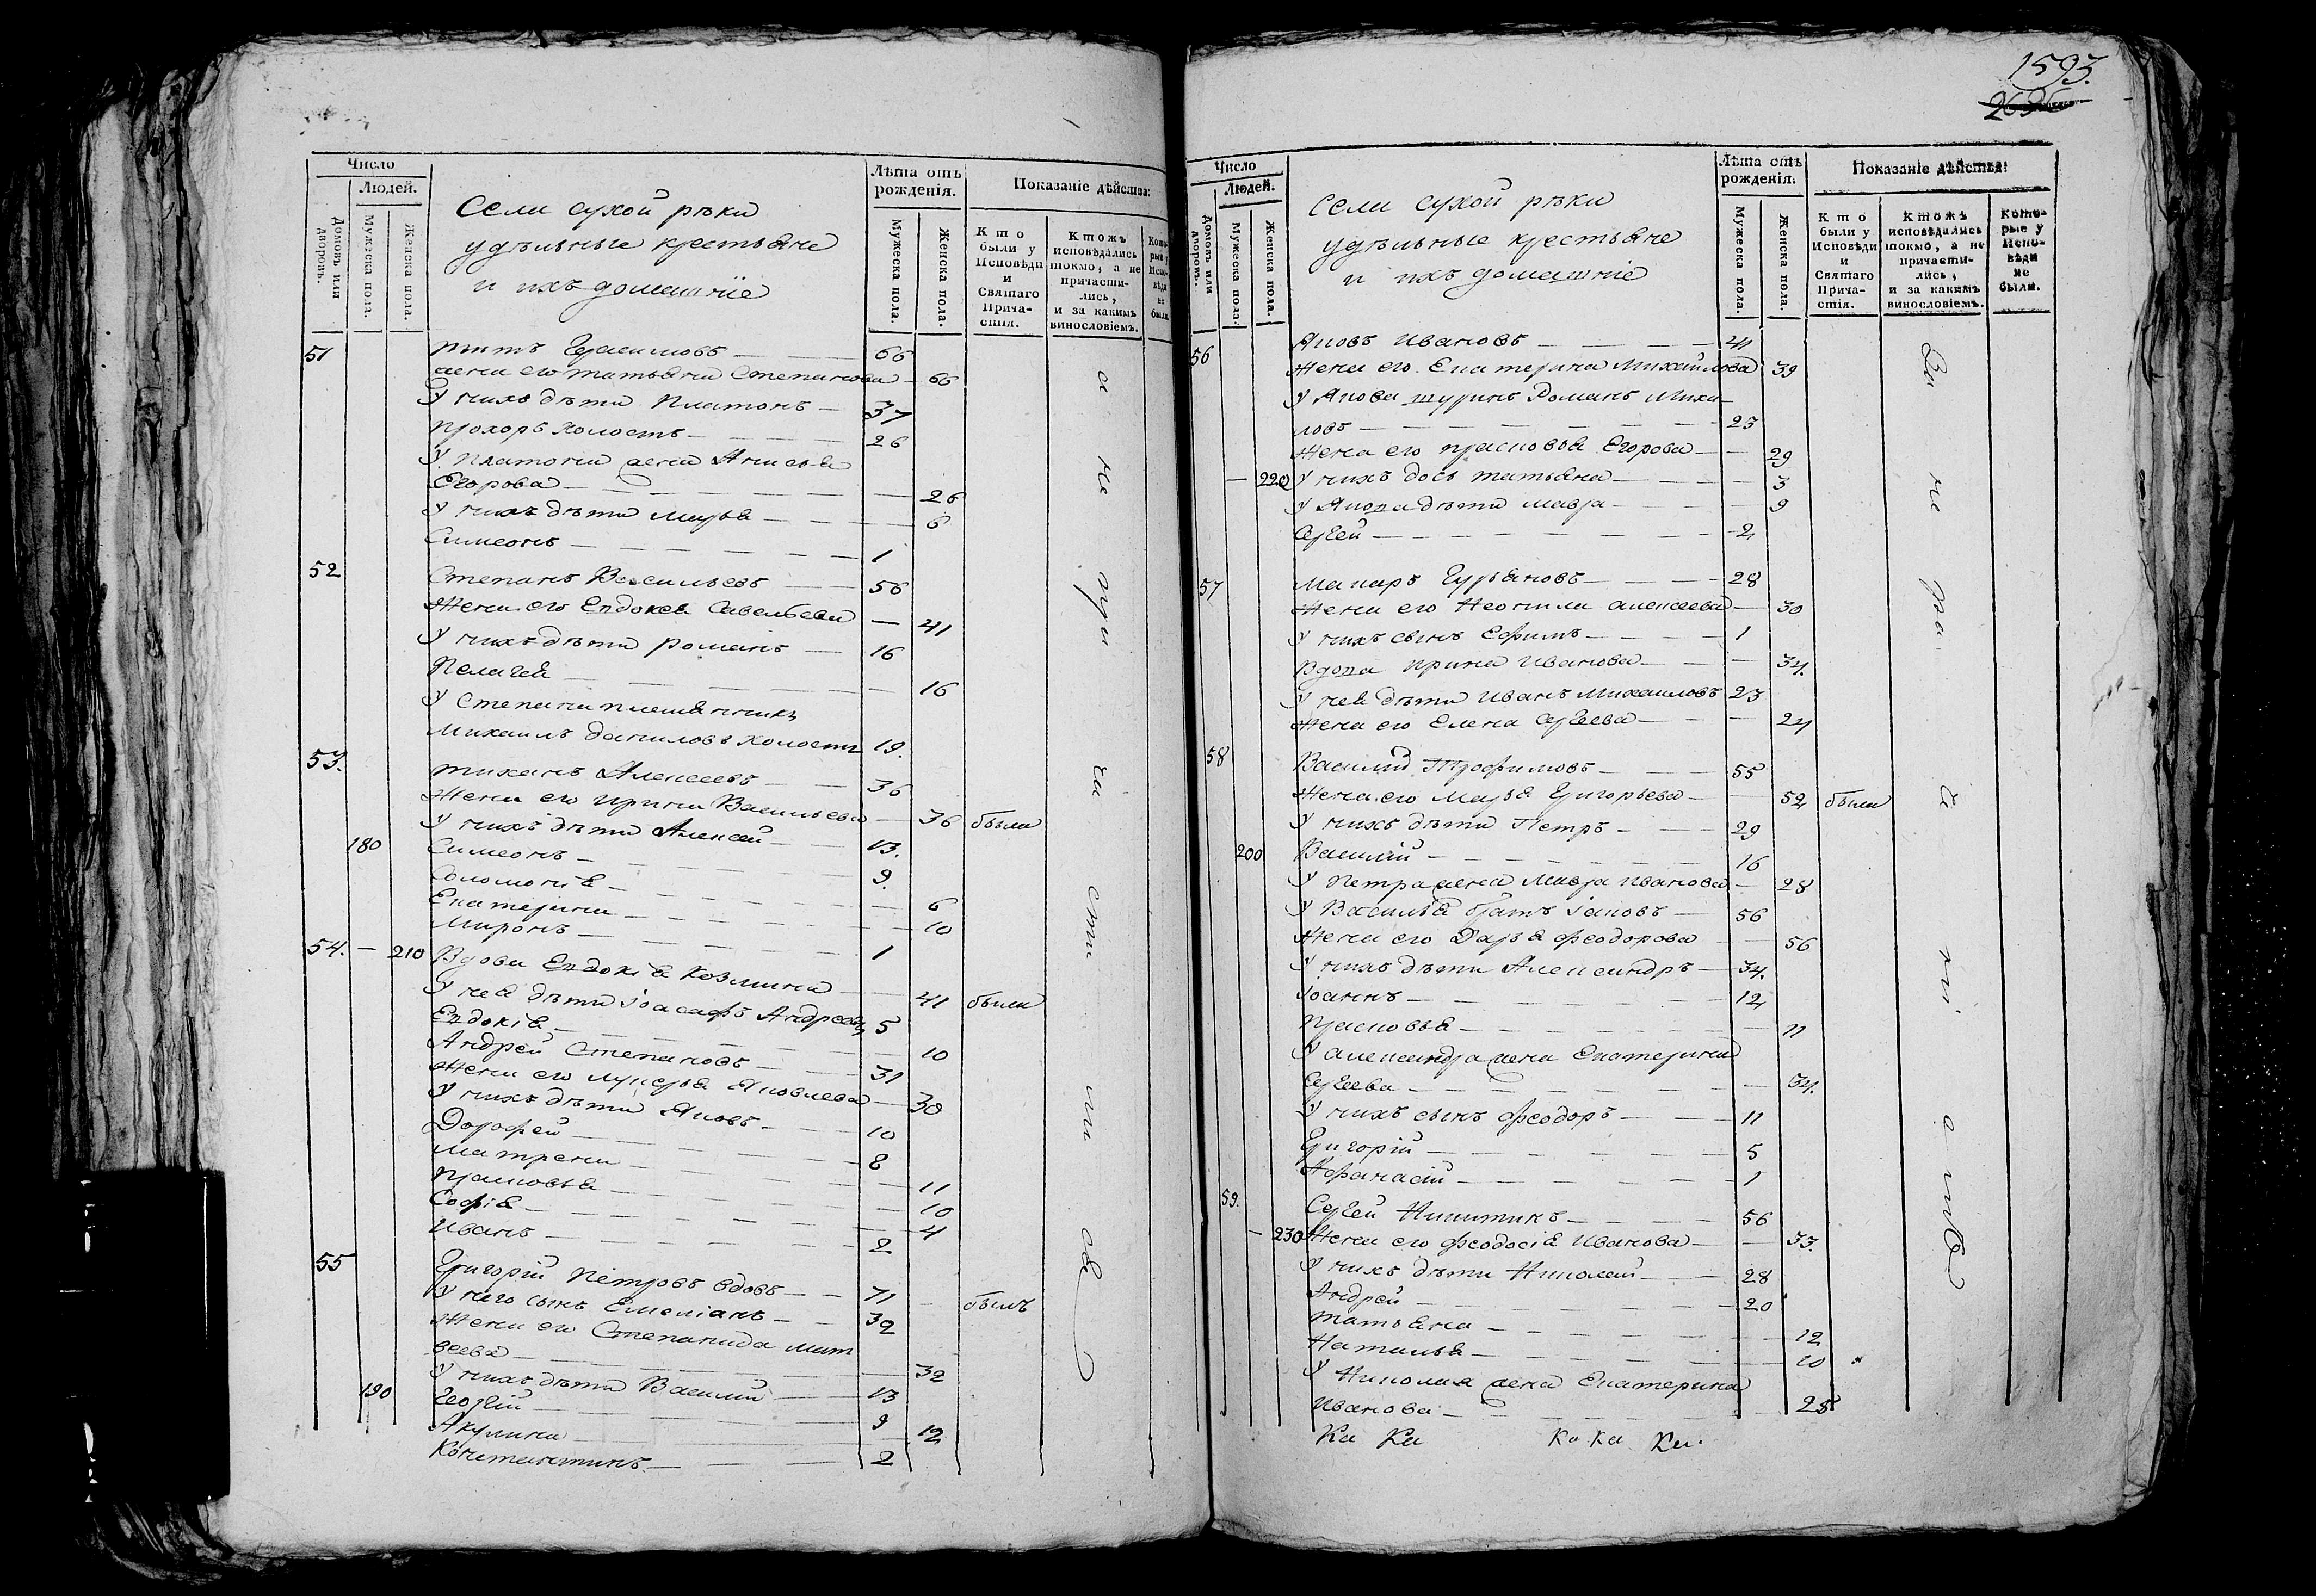 Число
Людей.
Домовъ или дворовъ.
Мужеска пола.
Женска пола.
Села сухой рѣки
удѣльные крестьяне
и ихъ домашніе
Лѣта отъ рожденія.
Мужеска пола.
Женска пола.
Показаніе дѣйства:
Кто были у Исповѣди и Святаго Причастія.
Ктожъ исповѣдались токмо, а не причастились, и за какимъ винословіемъ.
51 титъ Герасимовъ — 66
жена его татьяна Степанова — 66
У нихъ дѣти Платонъ — 37
прохоръ холостъ — 26
У платона жена Анисья
Егорова — 26
У нихъ дѣти марья — 6
Симеонъ — 1
52 Степанъ Васильевъ — 56
Жена его Евдокея Савельева — 41
У нихъ дѣти романъ — 16
Пелагея — 16
У Степана племянникъ
Михаилъ даниловъ холостъ 19.
53. тиханъ Алексеевъ — 36
Жена его ирина Васильева — 36 были
У нихъ дѣти Алексей — 13.
180 Симеонъ — 9.
Соломонія — 6
Екатерина — 10
Миронъ — 1
54. — 210 Вдова Евдокія Козмина — 41 были
У нея дѣти іоасафъ Андреевъ 5
Евдокія — 10
Андрей Степановъ — 31
Жена его лукерья Яковлева — 30
У нихъ дѣти Яковъ — 10
Дорофей — 8
Матрена — 11
прасковья — 10
Софія — 4
иванъ — 2
55 Григорій петровъ вдовъ — 71 — былъ
У него сынъ Емеліанъ — 32
Жена его Степанида мат
веева — 32
У нихъ дѣти Василий — 13
190 Георгій — 9
Акулина — 12
Константинъ — 2
1593.
Число
Людей.
Домовъ или дворовъ.
Мужеска пола.
Женска пола.
Села сухой рѣки
удѣльные крестьяне
и ихъ домашніе
Лѣта отъ рожденія.
Мужеска пола.
Женска пола.
Показаніе дѣйства:
Кто были у Исповѣди и Святаго Причастія.
Ктожъ исповѣдались токмо, а не причастились, и за какимъ винословіемъ.
Которые у Исповѣди не были.
56 Яковъ ивановъ — 41
Жена его Екатерина Михайлова 39
У Якова шуринъ Романъ Михаи
ловъ — 23
Жена его прасковья Егорова — 29
— 220 У нихъ дочь татьяна — 3
У Якова дѣти мавра — 9
Сергей — 2
57 Макаръ Гурьяновъ — 28
Жена его Неонила алексеева — 30
У нихъ сынъ Ефимъ — 1
Вдова ирина иванова — 34.
У нея дѣти иванъ михаиловъ 23
Жена его Елена Сергеева — 24
58 Василий Трофимовъ — 55
Жена его Марья Григорьева — 52 были
У нихъ дѣти Петръ — 29
200 Василий — 16
У петра жена Мавра иванова — 28
У Василья братъ іаковъ — 56
Жена его Дарья феодорова — 56
У нихъ дѣти Александръ — 34.
іоаннъ — 12
прасковья — 11
У александра жена Екатерина
Сергеева — 34.
У нихъ сынъ феодоръ — 11
Григорій — 5
Афанасій — 1
59. Сергей Никитинъ — 56
— 230 Жена его феодосія иванова — 33.
У нихъ дѣти Николай — 28
Андрей — 20
татьяна — 12
Наталья — 10
У Николая жена Екатерина
иванова — 25